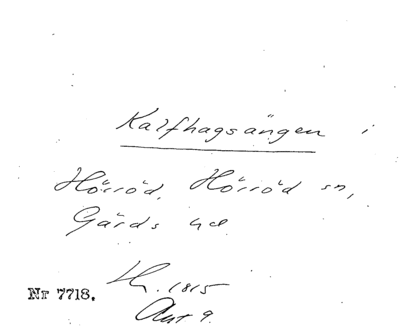 Kalfhagsängen i
Hörröd, Hörröd sn,
Gärds hd
Lh. 1815
Nr 7718.
Akt 9.